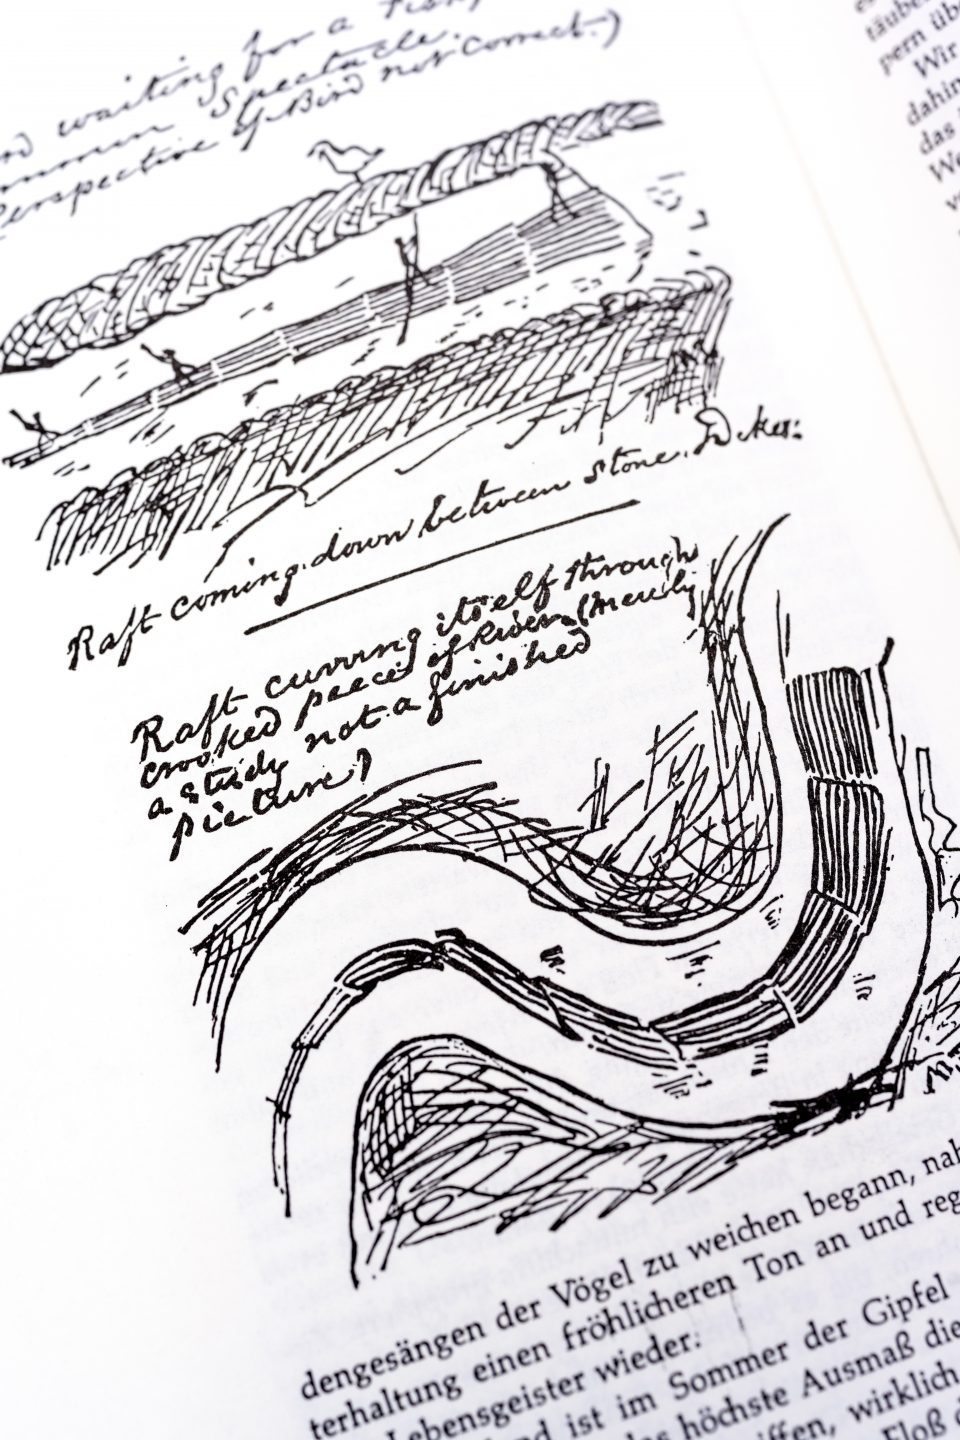 waiting for a
Spectacle.
Perspective of Bird not correct.)
Raft coming down between stone. D kes:
Raft curving itself through
crooked peece of River. (Merely
a study not a finished
picture)
dengesängen der Vögel zu weichen begann, nah
terhaltung einen fröhlicheren Ton an und reg
Lebensgeister wieder:
nd ist im Sommer der Gipfel
höchste Ausmaß die
iffen, wirklich
Floß d
täuber
pern üb
Wir
dahin
das
We